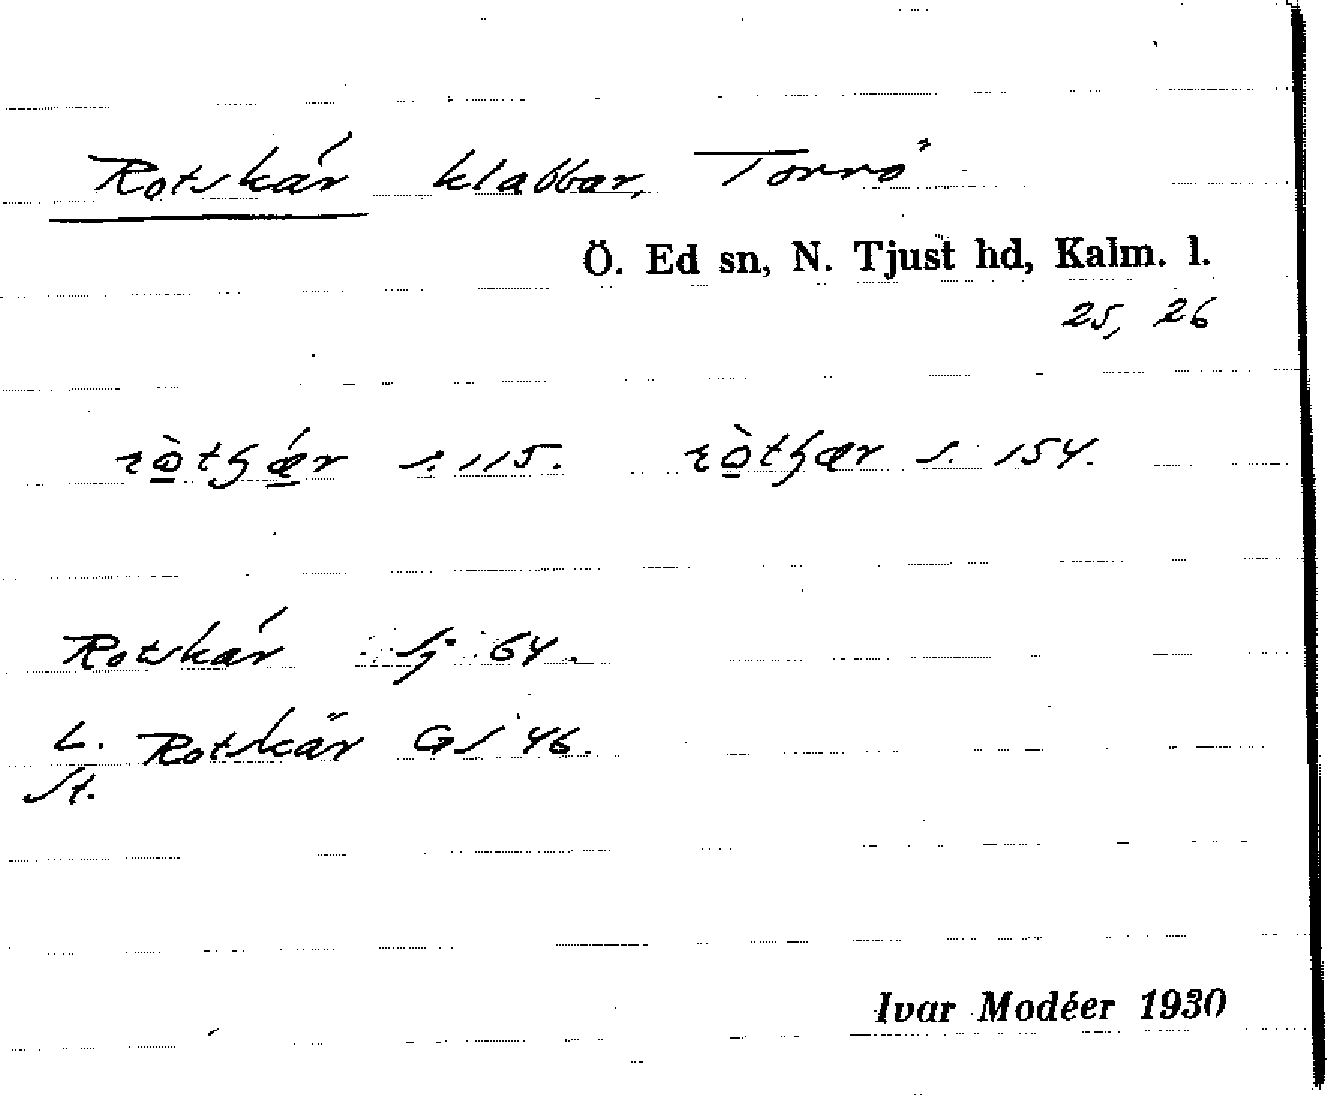 Rotskär klabbar, Torrö
Ö. Ed sn, N. Tjust hd, Kalm. l.
25, 26
s. 115. s. 154.
Rotskär Sj 64.
L. Rotskär GS 46.
St.
Ivar Modéer 1930